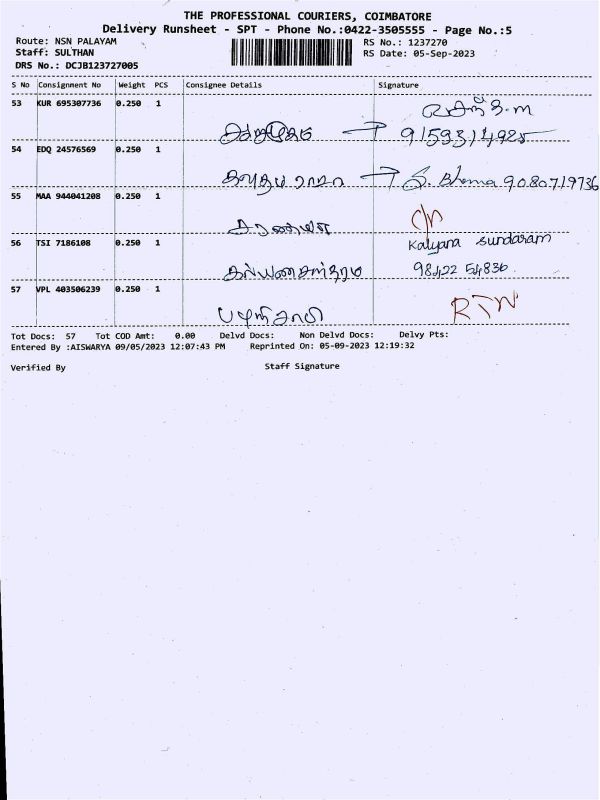 THE PROFESSIONAL COURIERS, COIMBATORE
Delivery Runsheet - SPT - Phone No.:0422-3505555 - Page No.:5
Route: NSN PALAYAM RS No.: 1237270
Staff: SULTHAN RS Date: 05-Sep-2023
DRS No.: DCJB123727005
S No Consignment No Weight PCS Consignee Details Signature
53 KUR 695307736 0.250 1
54 EDQ 24576569 0.250 1
S. Bhema 9080719736
55 MAA 944041208 0.250 1
சரண்யா
56 TSI 7186108 0.250 1 Kalyana Sundaram
கல்யாணசுந்தரம் 98422 54836
57 VPL 403506239 0.250 1
பழனிசாமி RTN
Tot Docs: 57 Tot COD Amt: 0.00 Delvd Docs: Non Delvd Docs: Delvy Pts:
Entered By :AISWARYA 09/05/2023 12:07:43 PM Reprinted On: 05-09-2023 12:19:32
Verified By Staff Signature